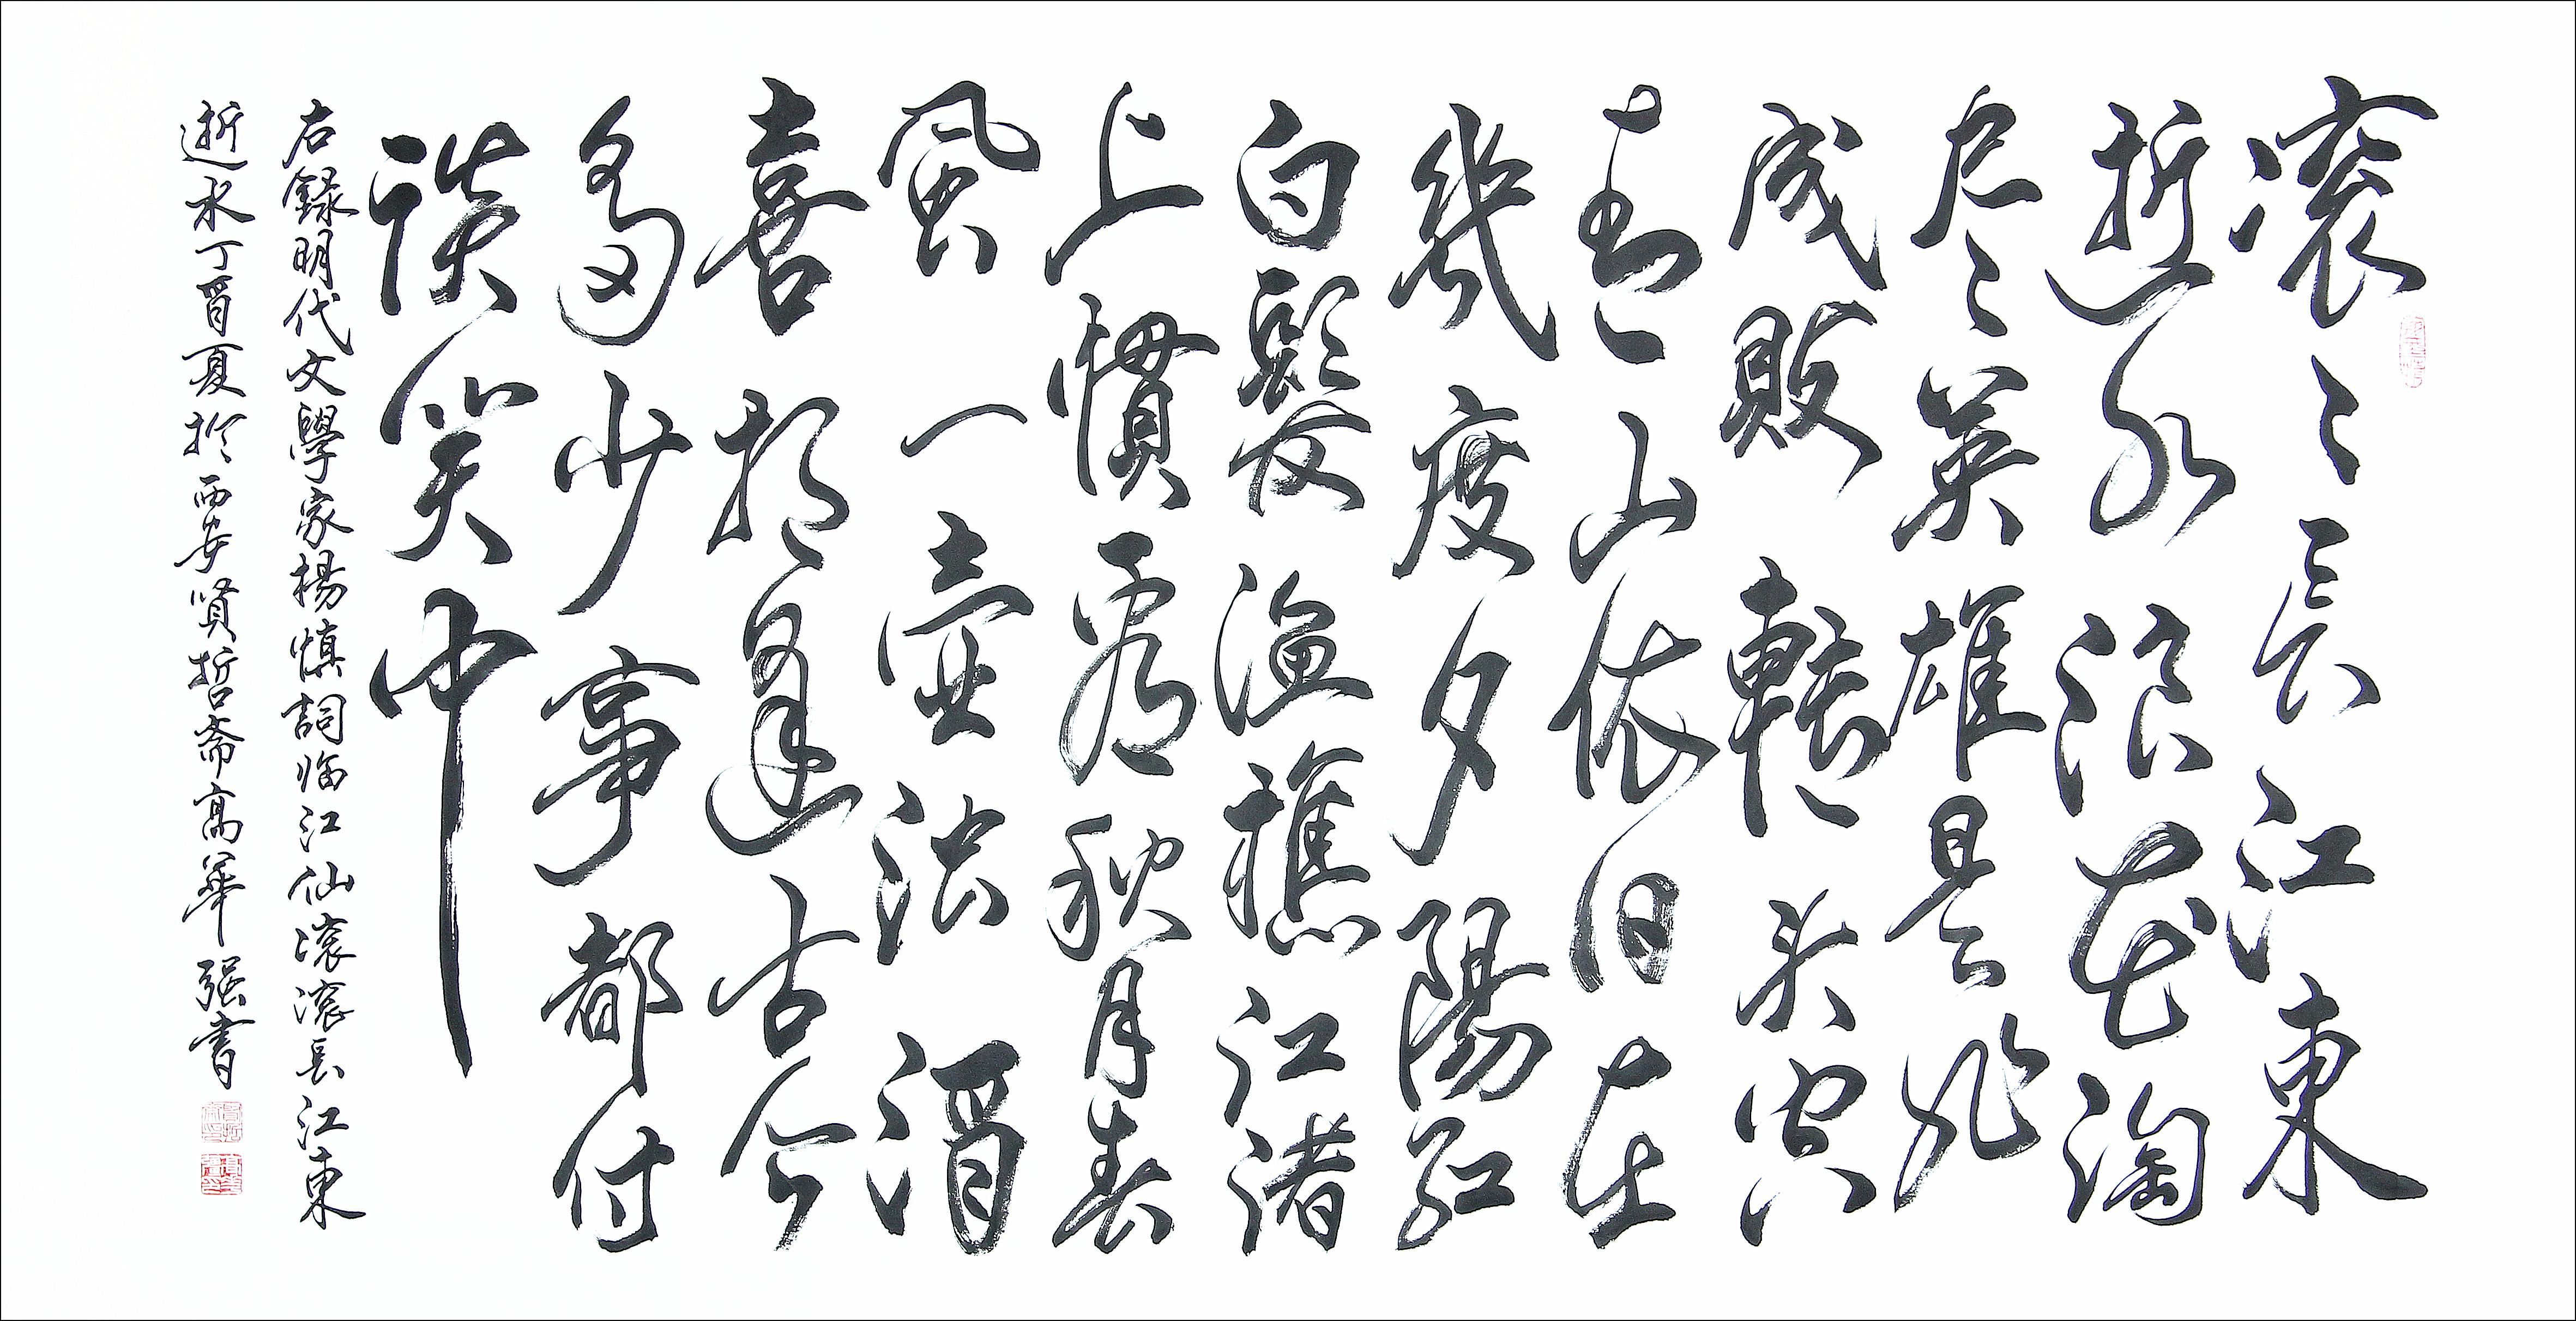 滚〻長江東
逝水浪花淘
尽英雄是非
成敗轉头空
青山依旧在
幾度夕陽红
白髮渔樵江渚
上慣看秋月春
風一壶浊酒
喜相逢古今
多少事都付
談笑中
右錄明代文學家楊慎詞临江仙滚滚長江東
逝水丁酉夏於西安賢哲斋高華强書